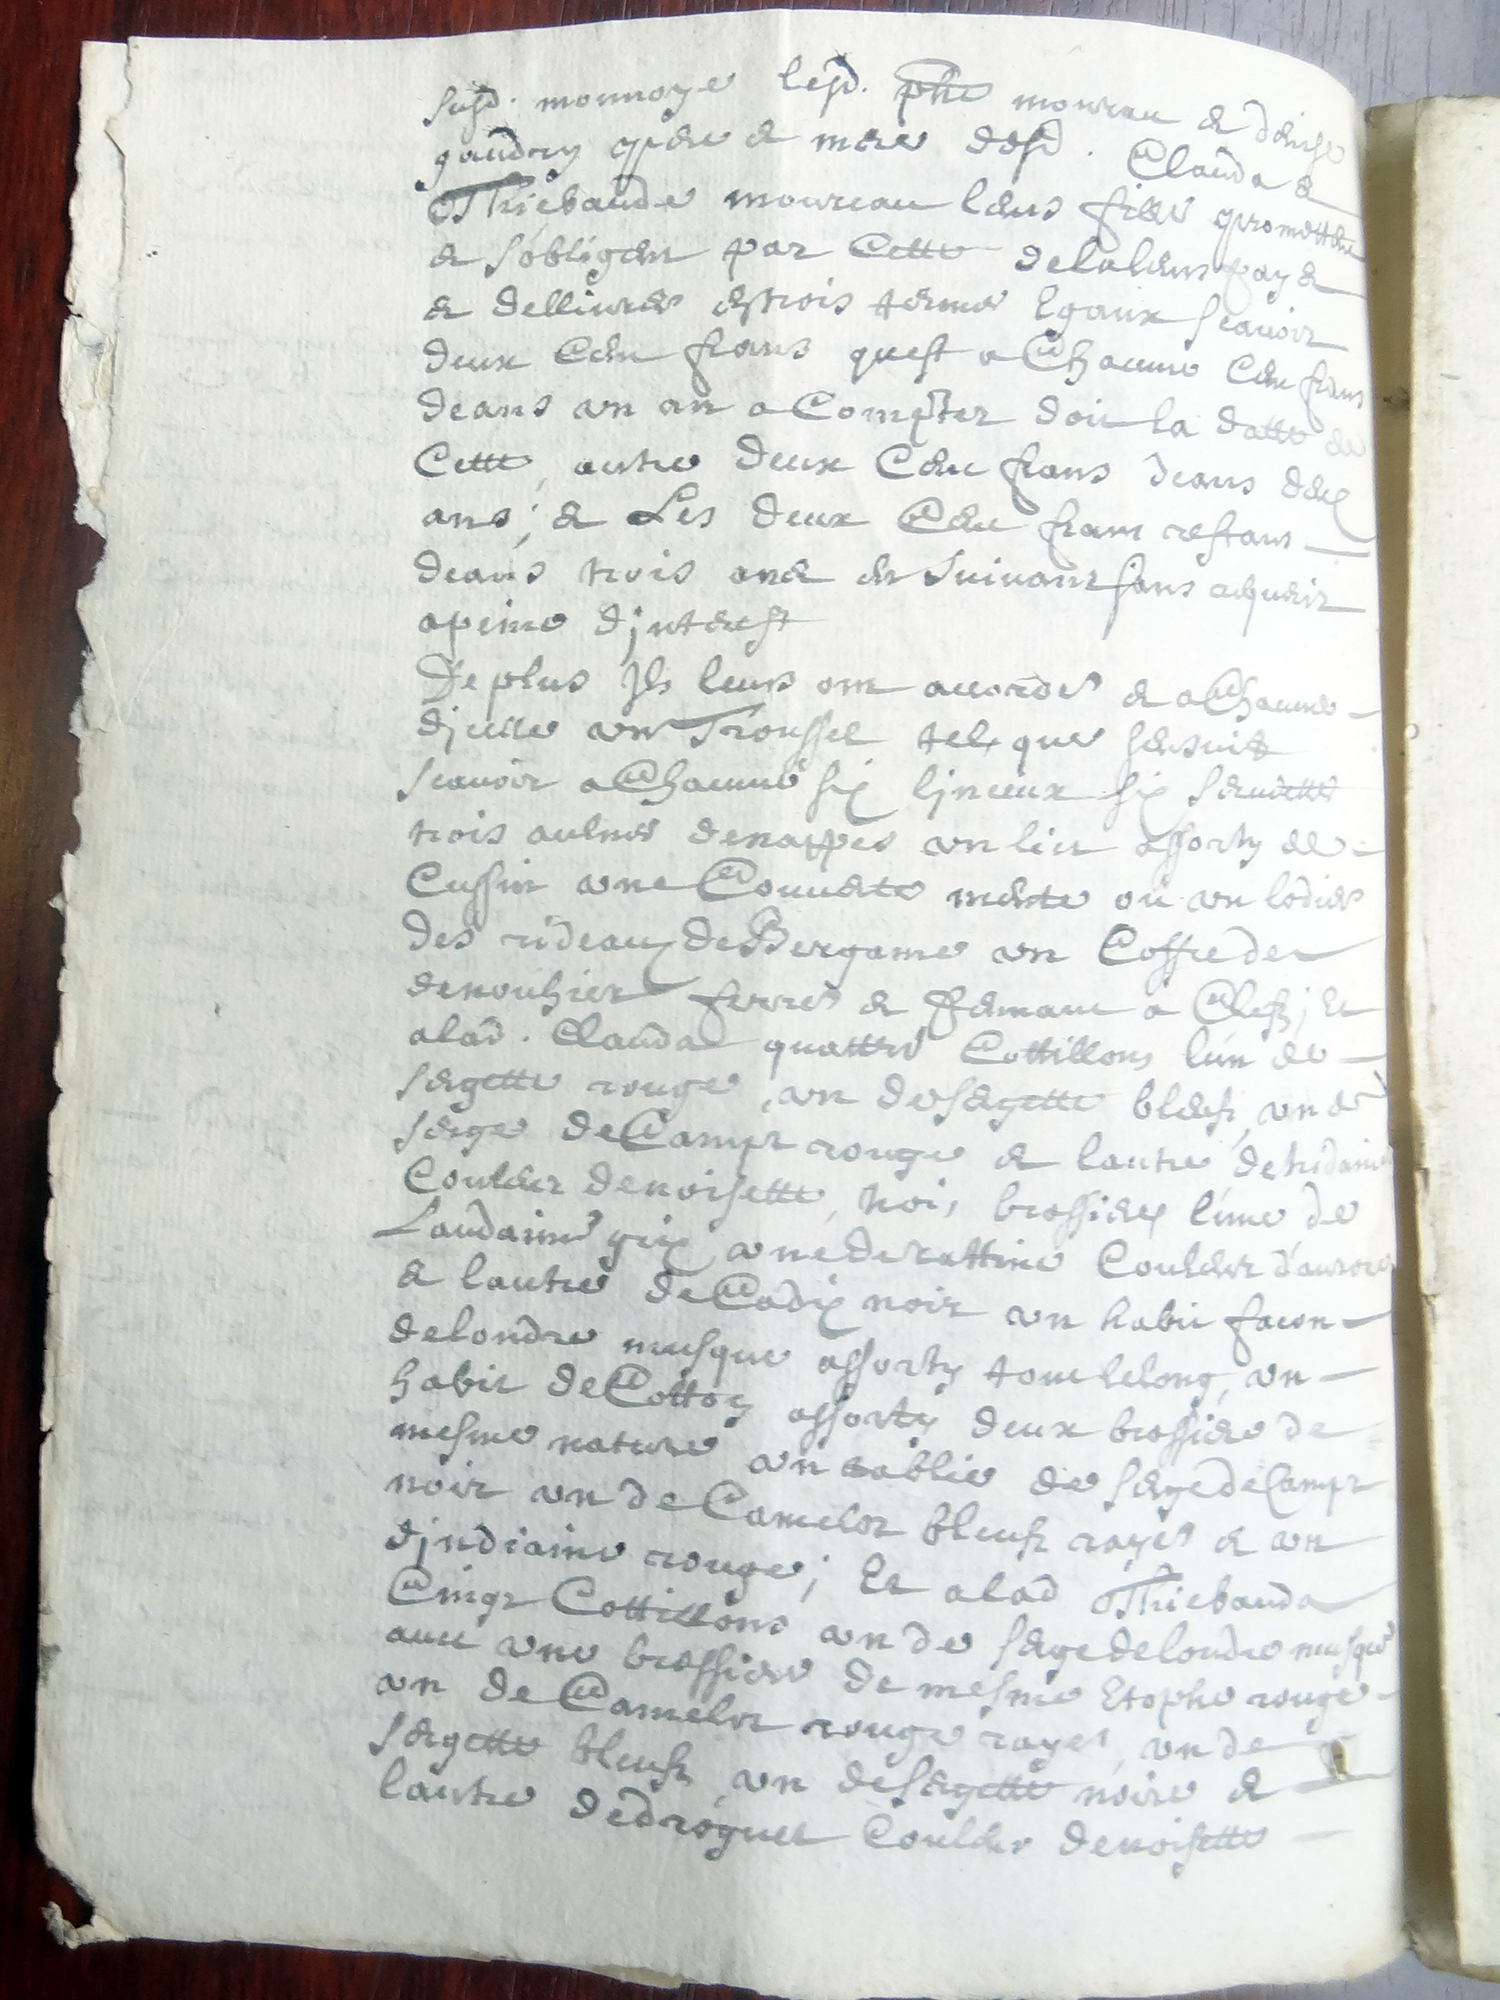 susd. monnoye lesd. phe moureau & denise
gaudry pere & mere desd. Clauda &
Thiebaude moureau leurs filles promettent
& sobligent par Cette de laleurs paye
& dellivrer estrois terme Egaux scavoir
deux Cent frans quest a Chacune Cent frans
deans un an a Compter doir la datte de
Cette, autre deux Cent frans deans deux
ans; & Les deux Cent frans restans
deans trois ans en suivant sans acquerir
apeine djnterest
De plus Jls leurs ont accordes & a Chacune
djcelle un Troussel tel que sensuit
scavoir a Chacune six linceux six serviette
trois aulnes denappes un lict assorty de
Cussin une Couverte mente ou un lodier
des rideaux de Bergame un Coffre de
denouhier ferres & fermant a Clefz; Et
alad. Clauda quattre Cottillons lun de
sergette rouge, un de sergette bleufz, un de
serge de Camps rouge & lautre de tridaine
Couleur denoisette, trois brassiere lune de
Laudaine gris une de rattine Couleur daurore
& lautre de Cadix noir un habit facon
delondre musque assorty tout lelong, un
habit de Cotton assorty deux brassiere de
mesme nature un tablie de serge de Camps
noir un de Camelot bleufz rayes & un
djndiaine rouge; Et alad Thiebauda
Cinqz Cottillons un de serge delondre musque
avec une brassiere de mesme Etophe rouge
un de Camelot rouge rayes, un de
sergette bleufz, un de sergette noire &
lautre dedroguet Couleur denoisette